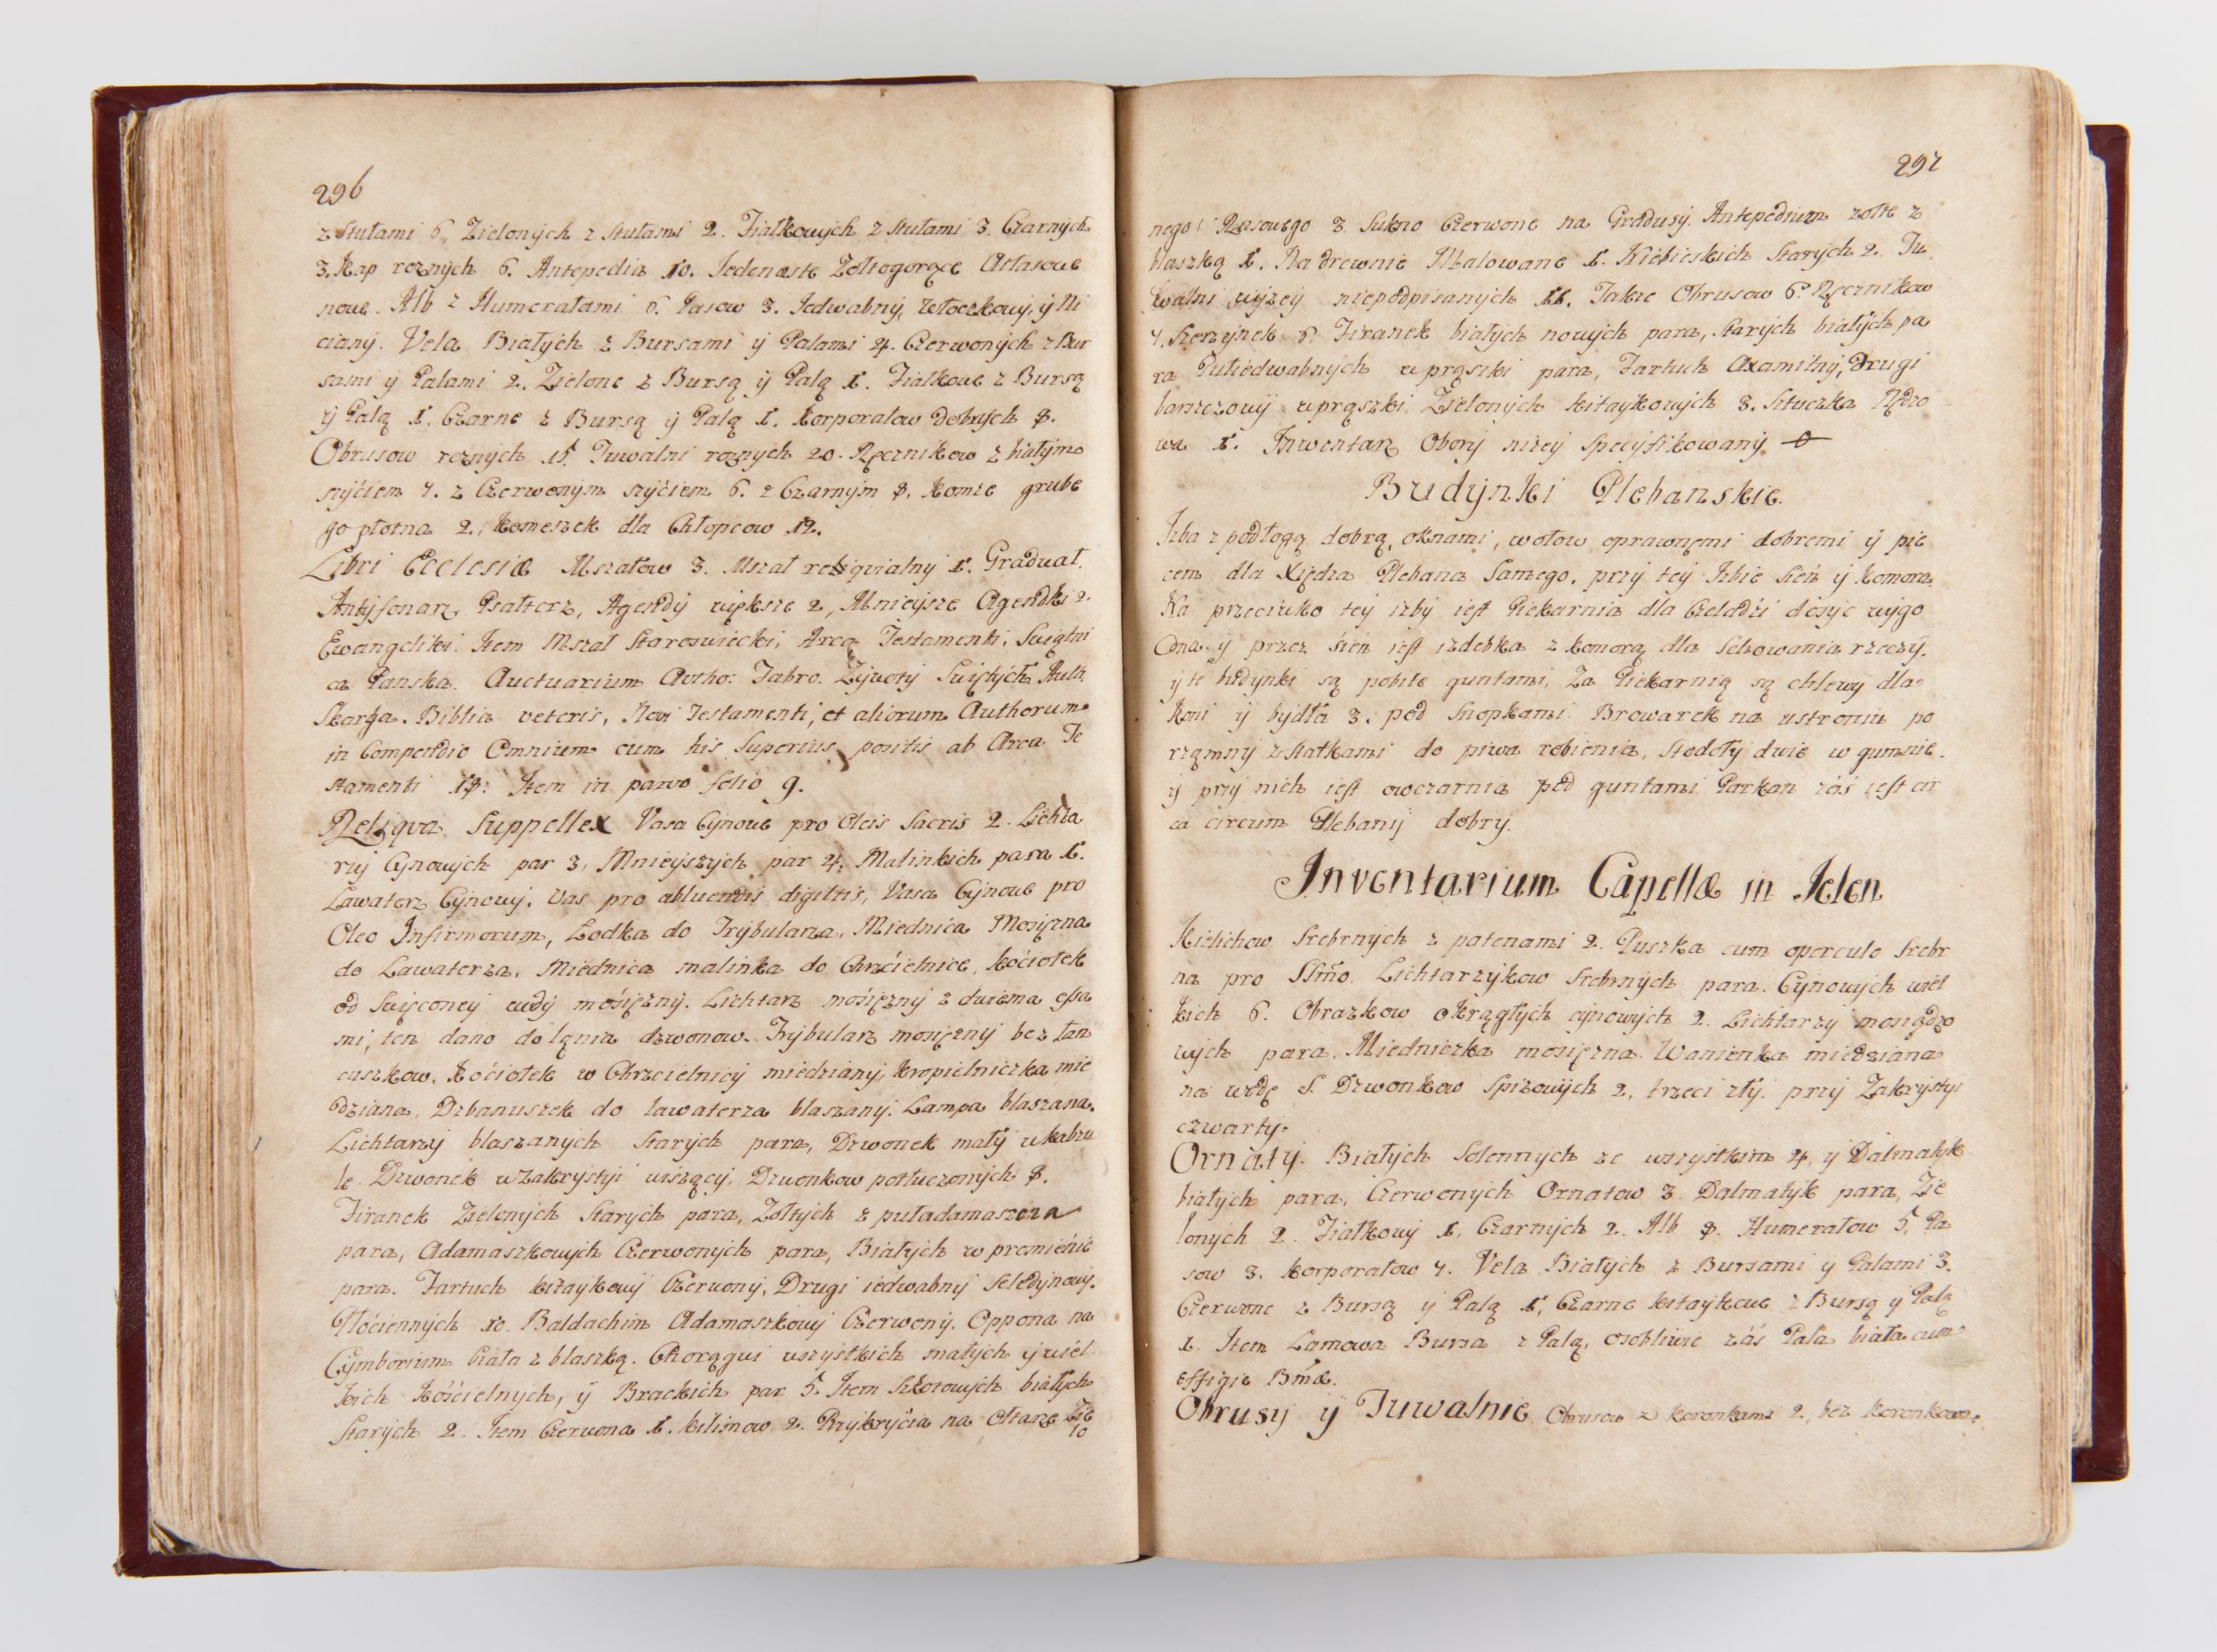 296
z Stułami 6. Zielonÿch z Stułami 2. Fiałkowÿch z Stułami 3. Czarnÿch
3. Kap roznÿch 6. Antepedia 10. Jedenaste Zołtogorące Atłasowe
nowe. Alb z Humerałami 6. Pasow 3. Jedwabnÿ, włoczkowÿ, ÿ Ni
cianÿ. Vela Białÿch z Bursami ÿ Palami 4. Czerwonÿch z Bur
sami ÿ Palami 2. Zielone z Bursą ÿ Palą 1. Fiałkowe z Bursą
ÿ Palą 1. Czarne z Bursą ÿ Palą 1. Korporałow Dobrÿch 8.
Obrusow roznÿch 15. Tuwalni roznÿch 20. Ręcznikow z białÿm
szÿciem 7. z Czerwonÿm szÿciem 6. z Czarnÿm 8. Komże grube
go płotna 2. Komeszek dla Chłopcow 12.
Libri Ecclesiæ Mszałow 3. Mszał reliqvialnÿ 1. Graduał,
Antÿfonarz, Psałterz, Agendÿ większe 2, Mnieÿsze Agendki 2.
Ewangeliki. Item Mszał Staroswiecki, Arca Testamenti, Swiątni
ca Panska. Auctuarium Autho: Fabro. Zÿwotÿ Swiętÿch Auth.
Skarga. Biblia veteris, Novi Testamenti, et aliorum Authorum
in Compendio Omnium cum his Superius positis ab Arca Te
stamenti 18. Item in parvo folio 9.
Reliqva Suppellex Vasa Cÿnowe pro Oleis Sacris 2. Lichta
rzÿ Cÿnowÿch par 3, Mnieÿszÿch par 4. Malinkich para 1.
Lawaterz Cÿnowÿ. Vas pro abluendis digitis, Vasa Cÿnowe pro
Oleo Infirmorum, Łodka do Trÿbularza, Miednica Mosięzna
do Lawaterza. Miednica malinka do Chrzcielnice, Kociołek
od Swięconeÿ wodÿ mosięznÿ. Lichtarz mosięznÿ z dwiema essa
mi, ten dano do lania dzwonow. Trÿbularz mosięznÿ bez łan
cuszkow. Kociołek w Chrzcielnicÿ miedzianÿ, kropielniczka mie
dziana, Dzbanuszek do lawaterza blaszanÿ. Lampa blaszana.
Lichtarzÿ blaszanÿch Starÿch para, Dzwonek małÿ w kabzu
le. Dzwonek w Zakrystÿi wiszącÿ, Dzwonkow potłuczonÿch 8.
Firanek Zielonÿch Starych para, Zołtÿch z puładamaszcza
para, Adamaszkowÿch Czerwonÿch para, Białÿch w promienie
para. Fartuch kitaÿkowÿ Czerwonÿ, Drugi iedwabnÿ Seledÿnowÿ.
Płociennÿch 10. Baldachim Adamaszkowÿ Czerwonÿ. Oppona na
Cÿmborium biała z blaszką. Chorągwi wszÿstkich małÿch ÿ wiel
kich Kościelnÿch, ÿ Brackich par 5. Item białÿch
Starÿch 2. Item Czerwona 1. kilimow 2. Przÿkrÿcia na Ołtarze Zie
lo
297
nego i Pąsowego 3. Sukno Czerwone na Gradusÿ. Antepedium zołte z
blaszką 1. Na drewnie Malowane 1. Niebieskich Starÿch 2. Tu
walni wÿzeÿ niepodpisanÿch 11. Takze Obrusow 6. Ręcznikow
7. 6. Firanek białÿch nowÿch para, starÿch białÿch pa
ra Pułiedwabnÿch w prązki para, Fartuch Axamitnÿ, Drugi
barszczowÿ w prążki, Zielonÿch kitaÿkowÿch 3. Sztuczka
wa 1. Inwentarz Oborÿ nizeÿ Specÿfikowanÿ.
Budÿnki Plebanskie.
Izba z podłogą dobrą, oknami, w ołow oprawnemi dobremi ÿ pie
cem dla Xiędza Plebana Samego, przÿ teÿ Izbie Sień ÿ Komora.
Na przeciwko teÿ izbÿ iest Piekarnia dla Czeladzi dosÿc wÿgo
dna, ÿ przez sień iest izdebka z komorą dla Schowania rzeczÿ.
ÿ te budÿnki są pobite guntami. Za Piekarnią są chlewy dla
Koni ÿ bÿdła 3. pod Snopkami. Browarek na ustroniu po
rząmnÿ z statkami do piwa robienia, stodołÿ dwie w gumnie.
ÿ przÿ nich iest owczarnia pod guntami. Parkan záś iest cir
ca circum Plebanÿ dobrÿ.
Inventarium Capellæ in Jelen
Kielichow Srebrnÿch z patenami 2. Puszka cum operculo srebr
na pro SSmo. Lichtarzÿkow srebrnÿch para. Cÿnowÿch wiel
kich 6. Obrazkow okrągłÿch cÿnowÿch 2. Lichtarzÿ mosiądzo
wÿch para. Miedniczka mosięzna. Wanienka miedziana
na wodę S. Dzwonkow Spizowÿch 2, trzeci złÿ przÿ Zakrÿstÿi
czwartÿ.
Ornatÿ. Białÿch Solennÿch ze wszÿstkim 4, ÿ Dalmatÿk
białÿch para, Czerwonÿch Ornatow 3. Dalmatÿk para, Zie
lonÿch 2. Fiałkowÿ 1, Czarnÿch 2. Alb 8. Humerałow 5. Pa
sow 3. Korporałow 7. Vela Białÿch z Bursami ÿ Palami 3.
Czerwone z Bursą ÿ Palą 1, Czarne kitaÿkowe z Bursą ÿ Palą
1. Item Lamowa Bursa z Palą, osobliwie záś Pala biała cum
effigie Bmæ.
Obrusÿ ÿ Tuwalnie. Obrusow z koronkami 2, bez koronkow.